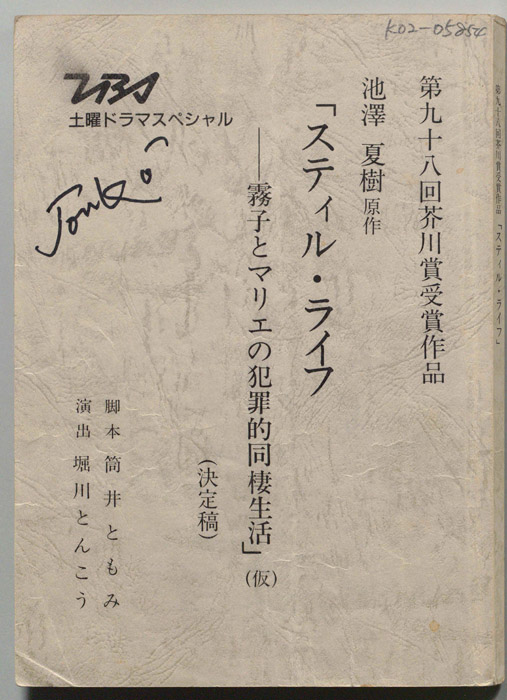 K02-05854
第九十八回芥川賞受賞作品
池澤 夏樹 原作
「スティル・ライフ
──霧子とマリエの犯罪的同棲生活」(仮)
(決定稿)
TBS
土曜ドラマスペシャル
脚本 筒井ともみ
演出 堀川とんこう
第九十八回芥川賞受賞作品 「スティル・ライフ」